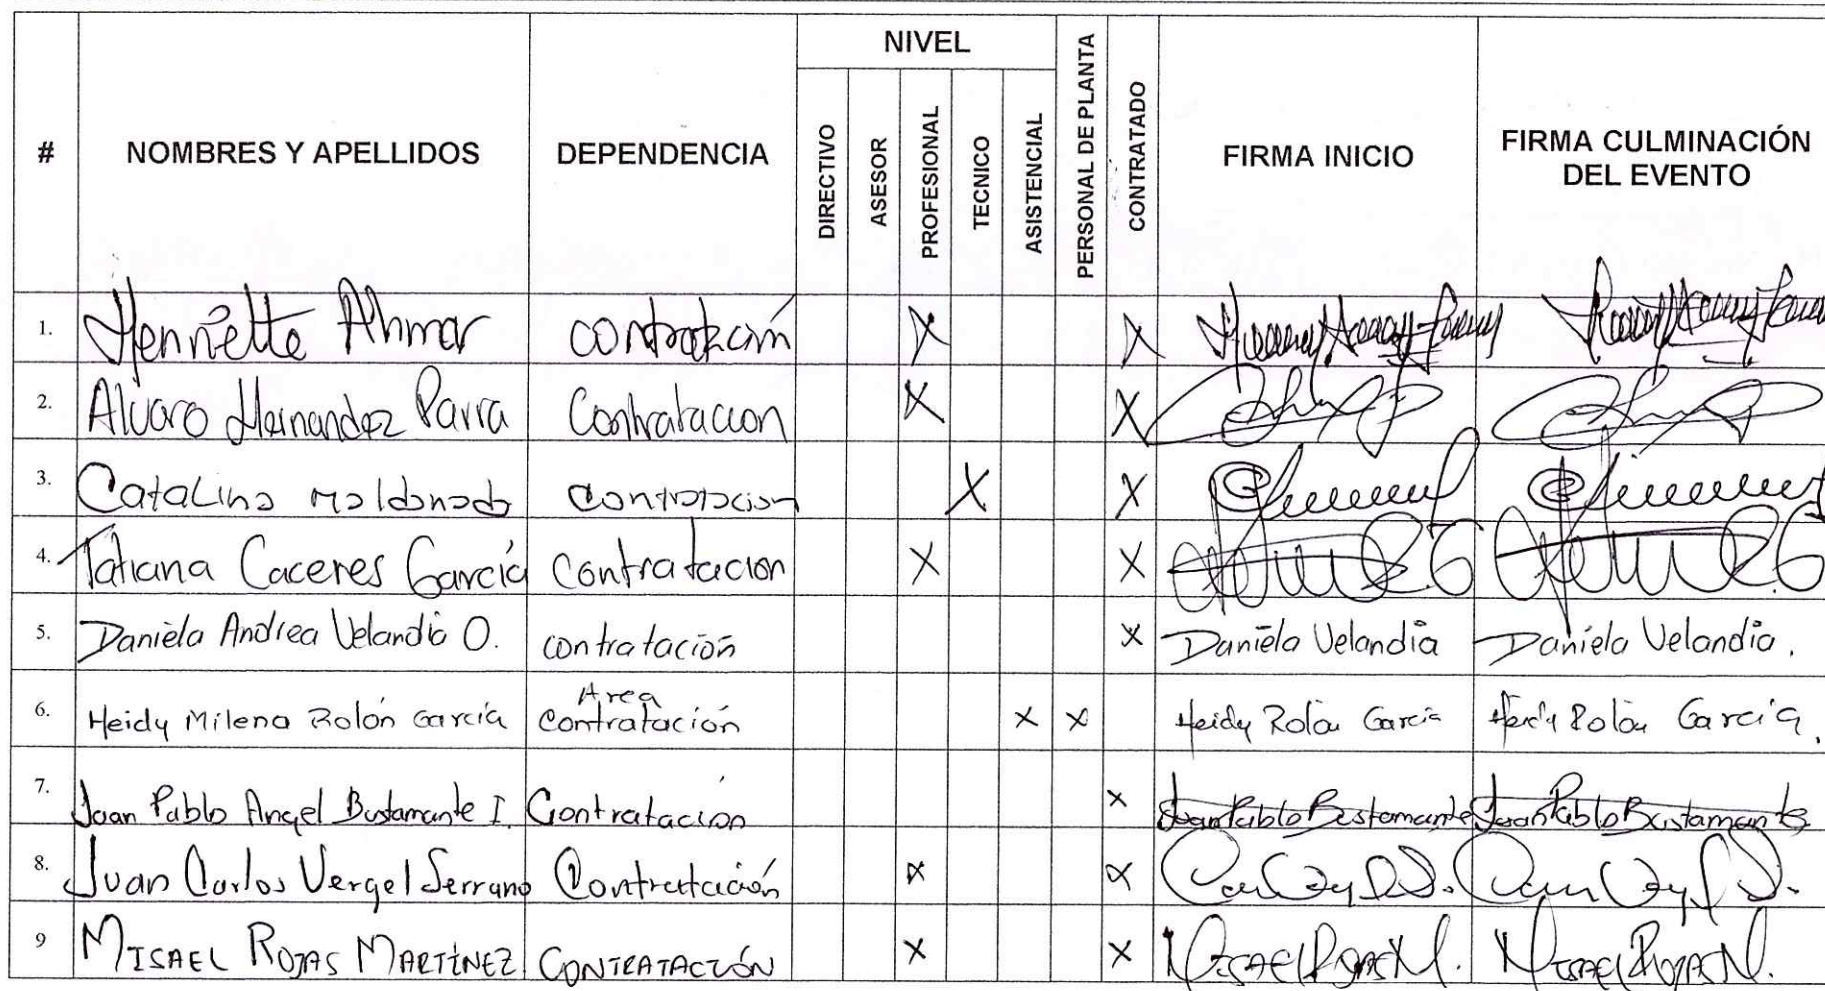 NIVEL
# NOMBRES Y APELLIDOS DEPENDENCIA DIRECTIVO ASESOR PROFESIONAL TECNICO ASISTENCIAL PERSONAL DE PLANTA CONTRATADO FIRMA INICIO FIRMA CULMINACIÓN
DEL EVENTO
1. Henriette Ahmar contratación X X
2. Alvaro Hernandez Parra Contratacion X X
3. Catalina maldonado contratacion X X
4. Tatiana Caceres García Contratacion X X
5. Daniela Andrea Velandia O. contratación X Daniela Velandia Daniela Velandia.
6. Heidy Milena Rolón García Area
Contratación X X Heidy Rolón García Heidy Rolón García.
7. Juan Pablo Angel Bustamante I. Contratación X Juan Pablo Bustamante Juan Pablo Bustamante
8. Juan Carlos Vergel Serrano Contratación X X
9 MISAEL ROJAS MARTÍNEZ CONTRATACIÓN X X MISAEL ROJAS M. MISAEL ROJAS M.